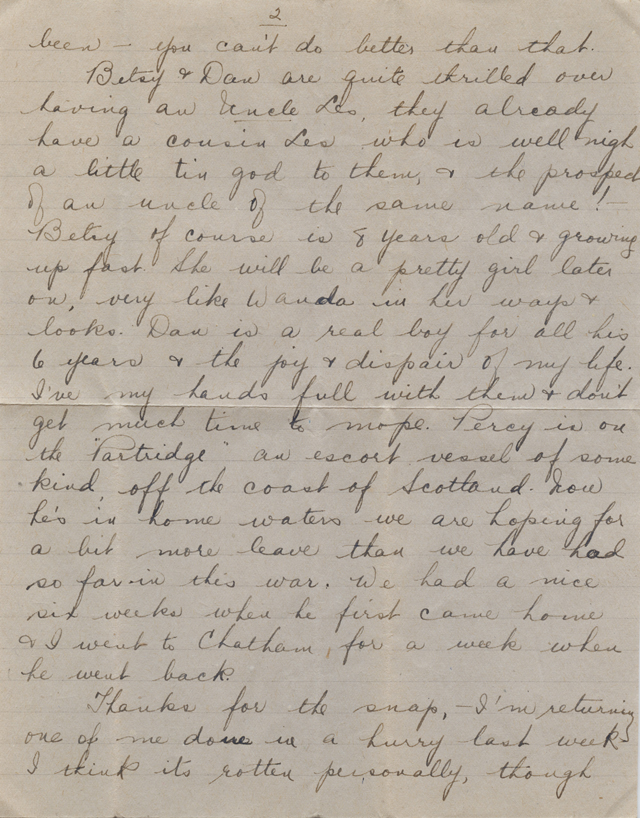 2
been – you can't do better than that.
Betsy & Dan are quite thrilled over
having an Uncle Les, they already
have a cousin Les who is well nigh
a little tin god to them, & the prospect
of an uncle of the same name! –
Betsy of course is 8 years old & growing
up fast. She will be a pretty girl later
on, very like Wanda in her ways &
looks. Dan is a real boy for all his
6 years & the joy & dispair of my life.
I've my hands full with them & don't
get much time to mope. Percy is on
the "Partridge" an escort vessel of some
kind, off the coast of Scotland. Now
he's in home waters we are hoping for
a bit more leave than we have had
so far in this war. We had a nice
six weeks when he first came home
& I went to Chatham, for a week when
he went back.
Thanks for the snap, – I'm returning
one of me done in a hurry last week –
I think its rotten personally, though